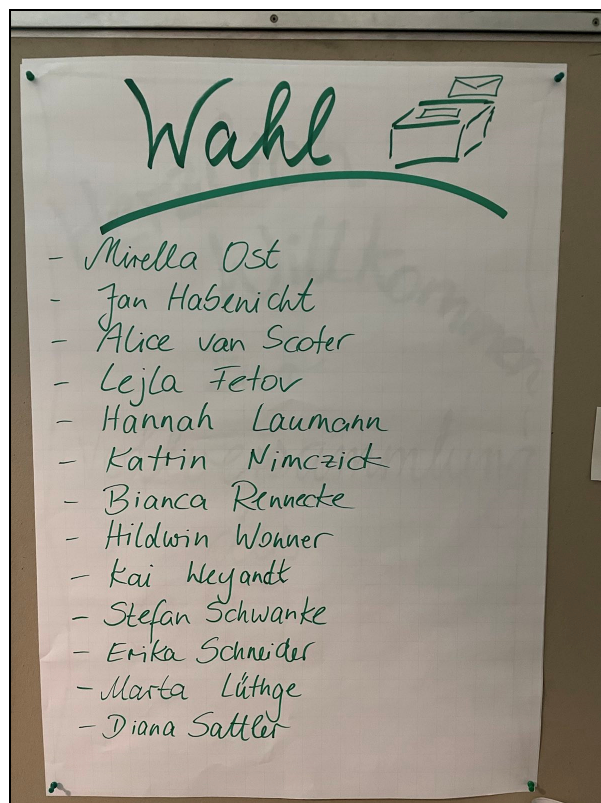 Wahl
- Mirella Ost
- Jan Habenicht
- Alice van Scoter
- Lejla Fetov
- Hannah Laumann
- Katrin Nimczick
- Bianca Rennecke
- Hildwin Wonner
- Kai Weyandt
- Stefan Schwanke
- Erika Schneider
- Marta Lüthge
- Diana Sattler